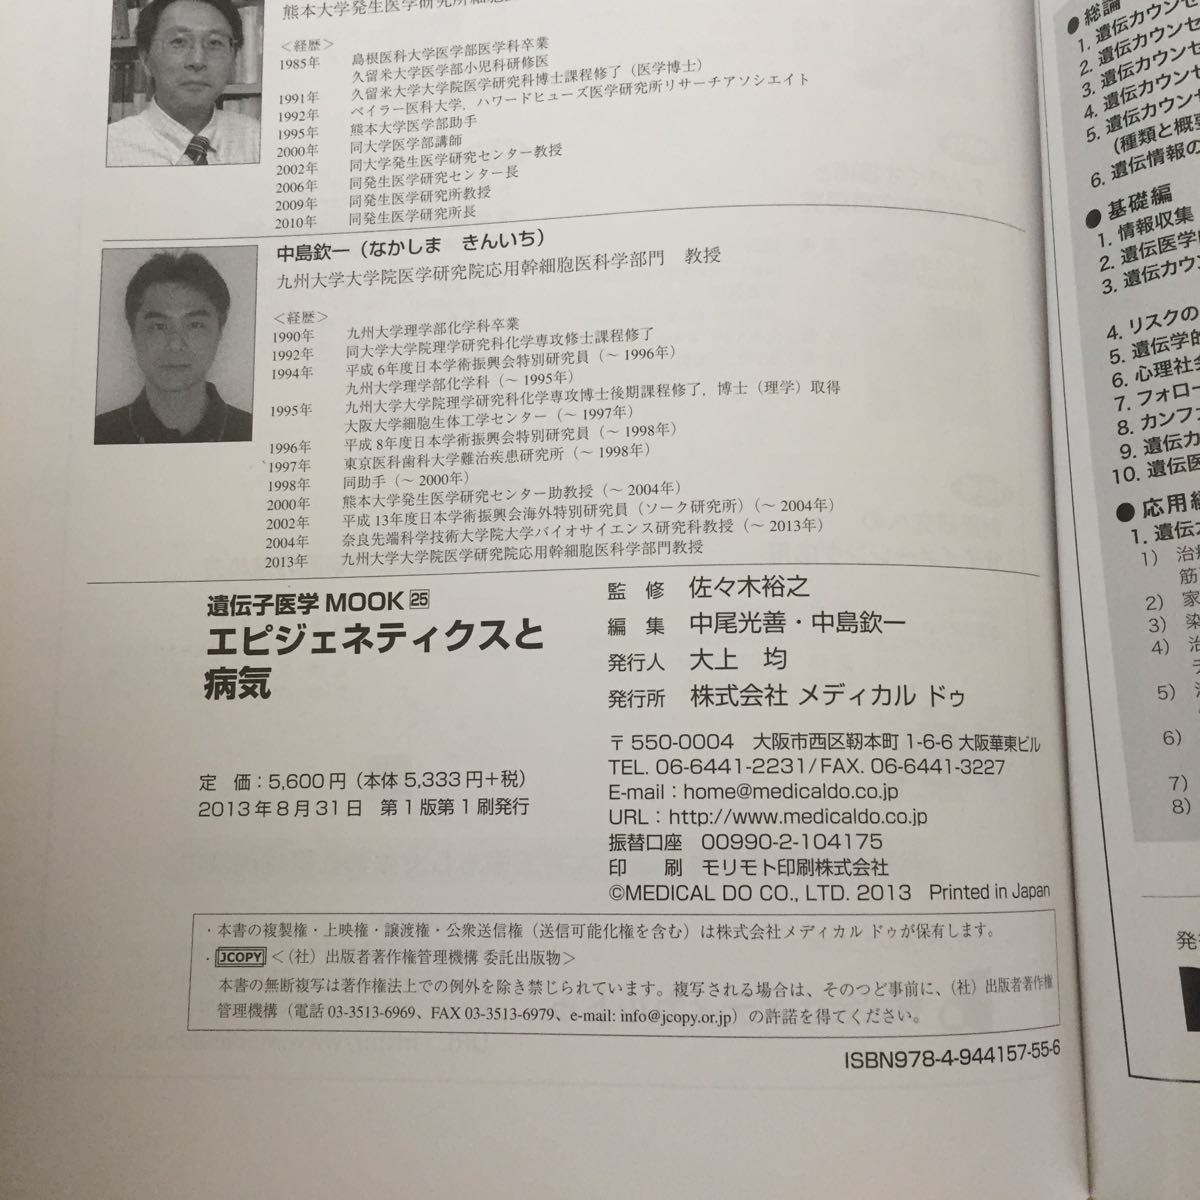 熊本大学発生医学研究所細胞
<経歴>
1985年 島根医科大学医学部医学科卒業
久留米大学医学部小児科研修医
1991年 久留米大学大学院医学研究科博士課程修了（医学博士）
1992年 ベイラー医科大学，ハワードヒューズ医学研究所リサーチアソシエイト
1995年 熊本大学医学部助手
2000年 同大学医学部講師
2002年 同大学発生医学研究センター教授
2006年 同発生医学研究センター長
2009年 同発生医学研究所教授
2010年 同発生医学研究所長
中島欽一（なかしま きんいち）
九州大学大学院医学研究院応用幹細胞医科学部門 教授
<経歴>
1990年 九州大学理学部化学科卒業
1992年 同大学大学院理学研究科化学専攻修士課程修了
1994年 平成6年度日本学術振興会特別研究員（～1996年）
九州大学理学部化学科（～1995年）
1995年 九州大学大学院理学研究科化学専攻博士後期課程修了，博士（理学）取得
大阪大学細胞生体工学センター（～1997年）
1996年 平成8年度日本学術振興会特別研究員（～1998年）
1997年 東京医科歯科大学難治疾患研究所（～1998年）
1998年 同助手（～2000年）
2000年 熊本大学発生医学研究センター助教授（～2004年）
2002年 平成13年度日本学術振興会海外特別研究員（ソーク研究所）（～2004年）
2004年 奈良先端科学技術大学院大学バイオサイエンス研究科教授（～2013年）
2013年 九州大学大学院医学研究院応用幹細胞医科学部門教授
遺伝子医学 MOOK 25
エピジェネティクスと
病気
定 価：5,600円（本体 5,333円＋税）
2013年8月31日 第1版第1刷発行
監 修 佐々木裕之
編 集 中尾光善・中島欽一
発行人 大上 均
発行所 株式会社 メディカル ドゥ
〒550-0004 大阪市西区靭本町 1-6-6 大阪華東ビル
TEL. 06-6441-2231/FAX. 06-6441-3227
E-mail：home@medicaldo.co.jp
URL：http://www.medicaldo.co.jp
振替口座 00990-2-104175
印 刷 モリモト印刷株式会社
©MEDICAL DO CO., LTD. 2013 Printed in Japan
・本書の複製権・上映権・譲渡権・公衆送信権（送信可能化権を含む）は株式会社メディカル ドゥが保有します。
・JCOPY＜（社）出版者著作権管理機構 委託出版物＞
本書の無断複写は著作権法上での例外を除き禁じられています。複写される場合は、そのつど事前に、（社）出版者著作権
管理機構（電話 03-3513-6969、FAX 03-3513-6979、e-mail: info@jcopy.or.jp）の許諾を得てください。
ISBN978-4-944157-55-6
●総論
1. 遺伝カウンセ
2. 遺伝カウンセ
3. 遺伝カウンセ
4. 遺伝カウンセ
5. 遺伝カウンセ
（種類と概要
6. 遺伝情報の
●基礎編
1. 情報収集
2. 遺伝医学
3. 遺伝カウ
4. リスクの
5. 遺伝学的
6. 心理社会
7. フォロー
8. カンファ
9. 遺伝カ
10. 遺伝医
●応用編
1. 遺伝カ
1） 治療
筋
2） 家
3） 染
4） 治
5）
6）
7）
8）
発